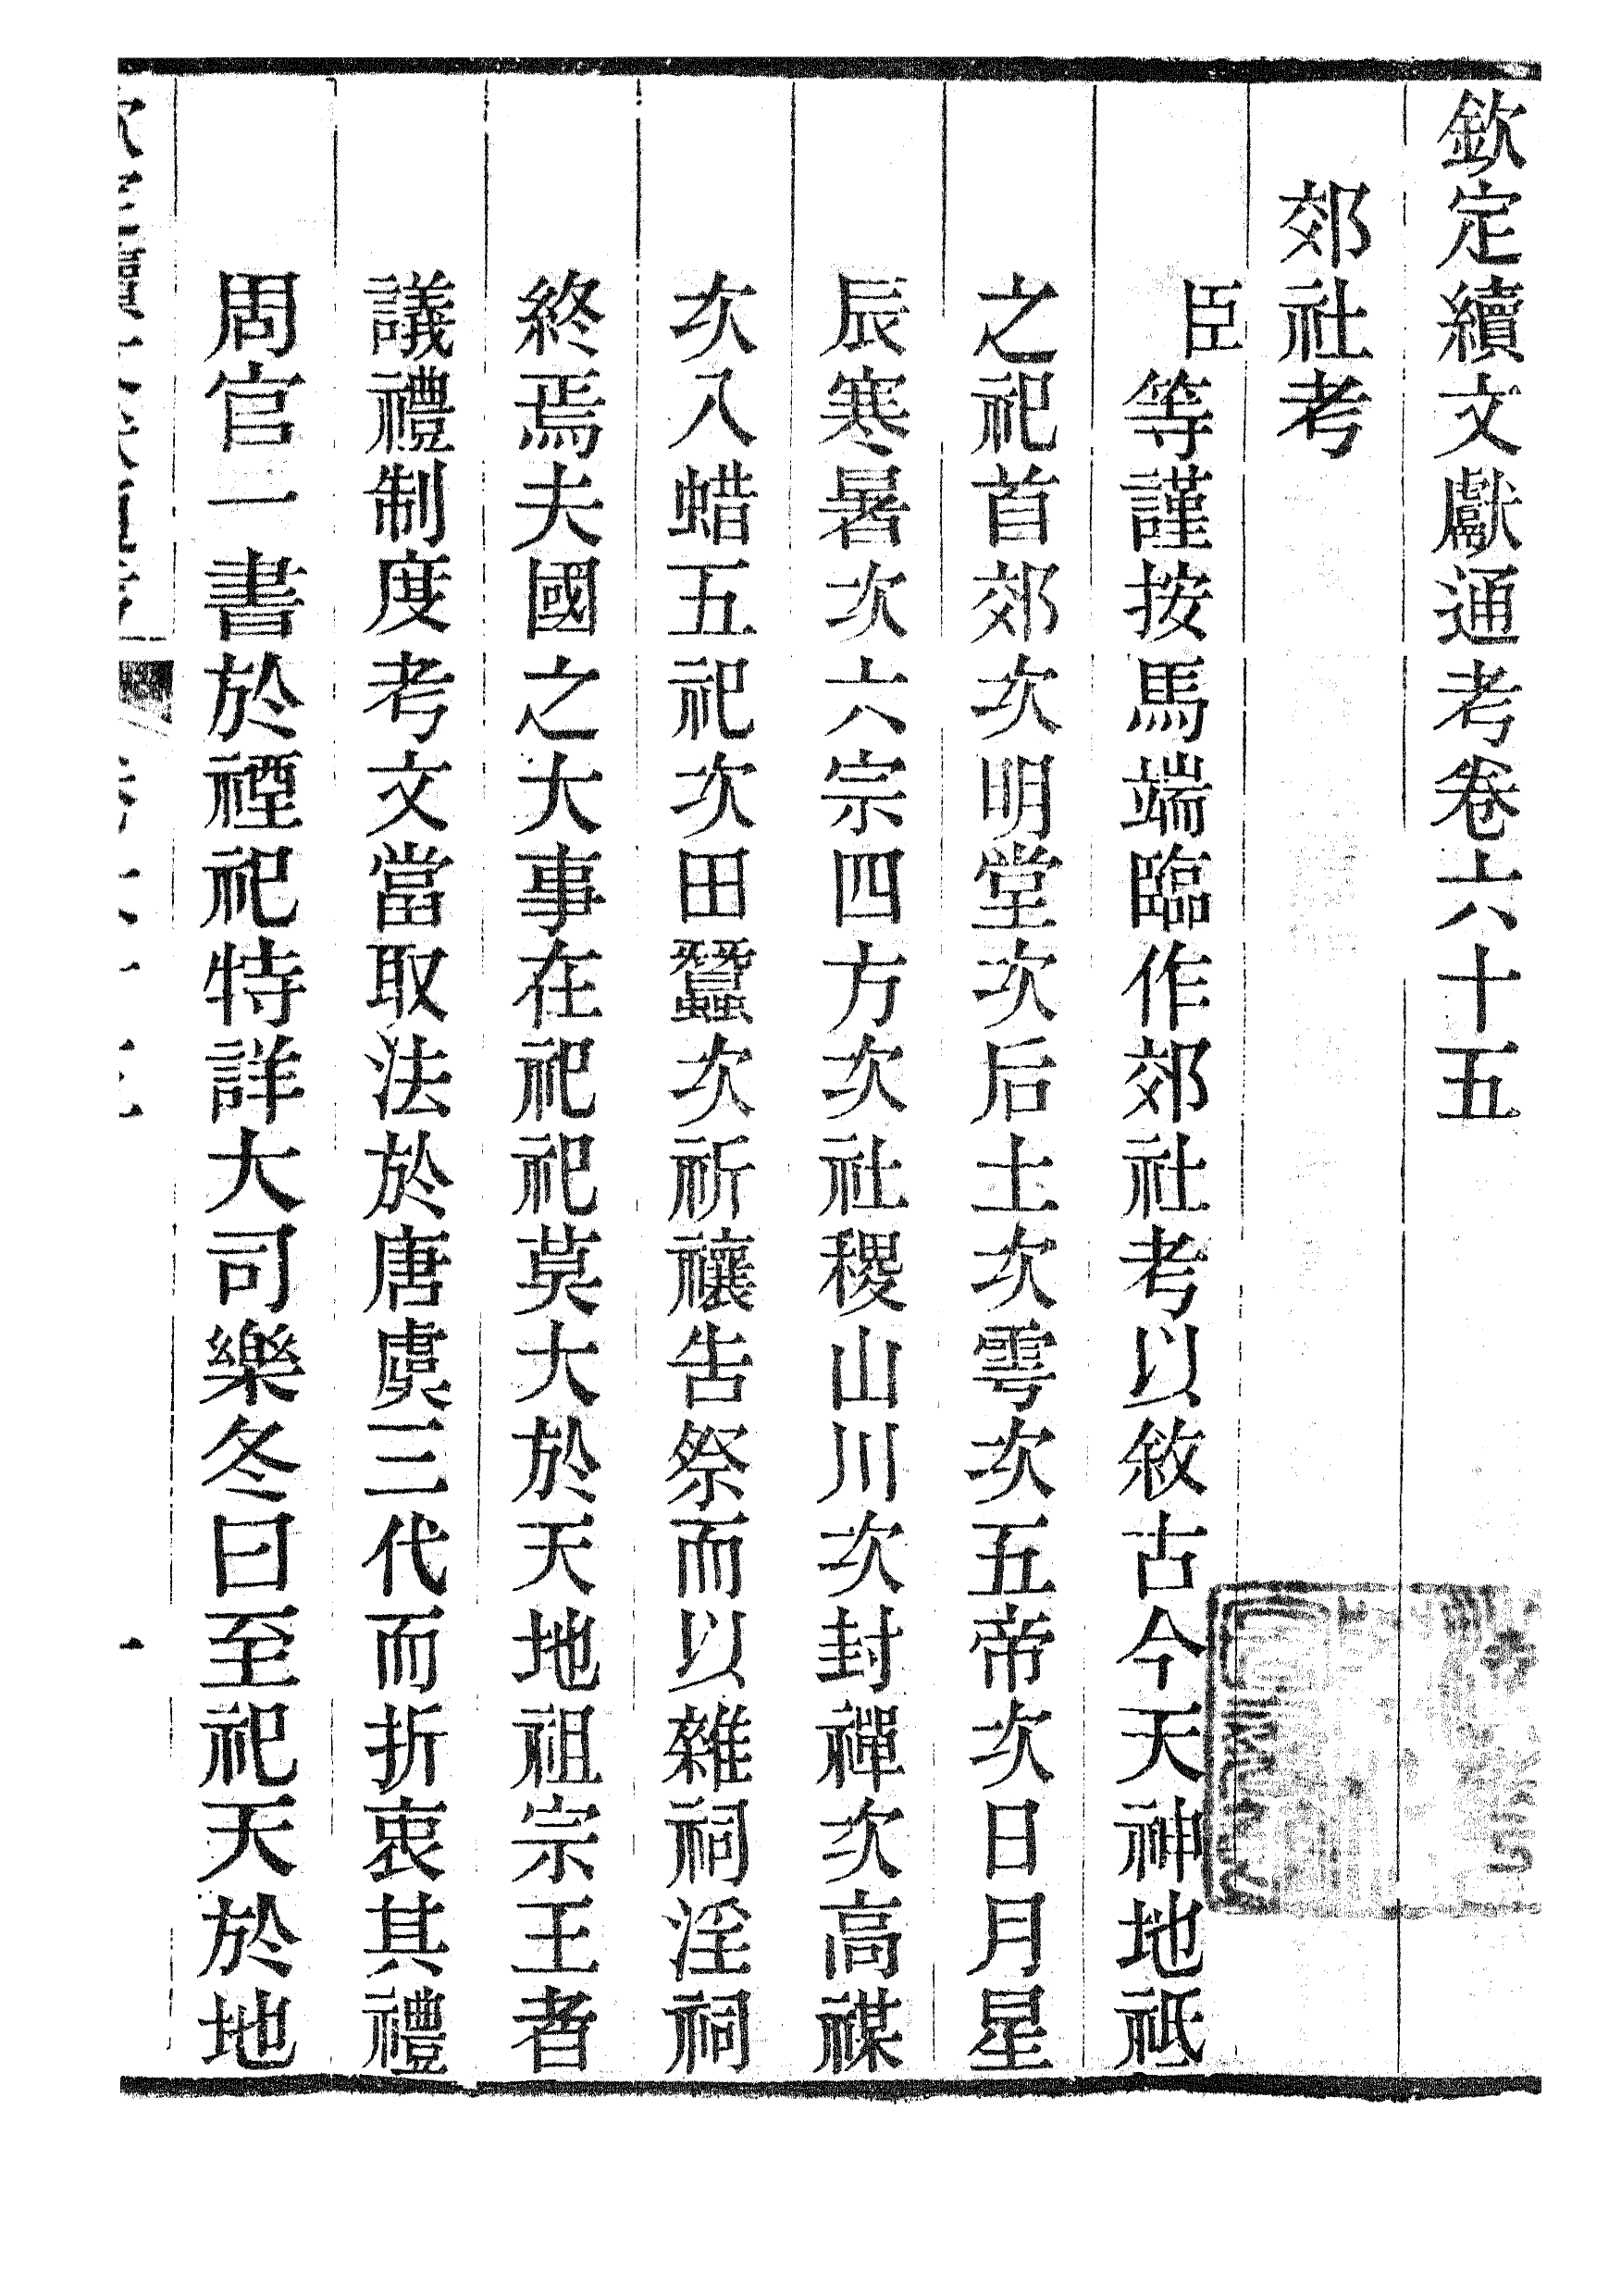 欽定續文獻通考卷六十五
郊社考
臣等謹按馬端臨作郊社考以敘古今天神地祗
之祀首郊次明堂次后土次雩次五帝次日月星
辰寒暑次六宗四方次社稷山川次封禪次高禖
次八蜡五祀次田蠶次祈禳告祭而以雜祠淫祠
終焉夫國之大事在祀祀莫大於天地祖宗王者
議禮制度考文當取法於唐虞三代而折衷其禮
周官一書於禋祀特詳大司樂冬日至祀天於地